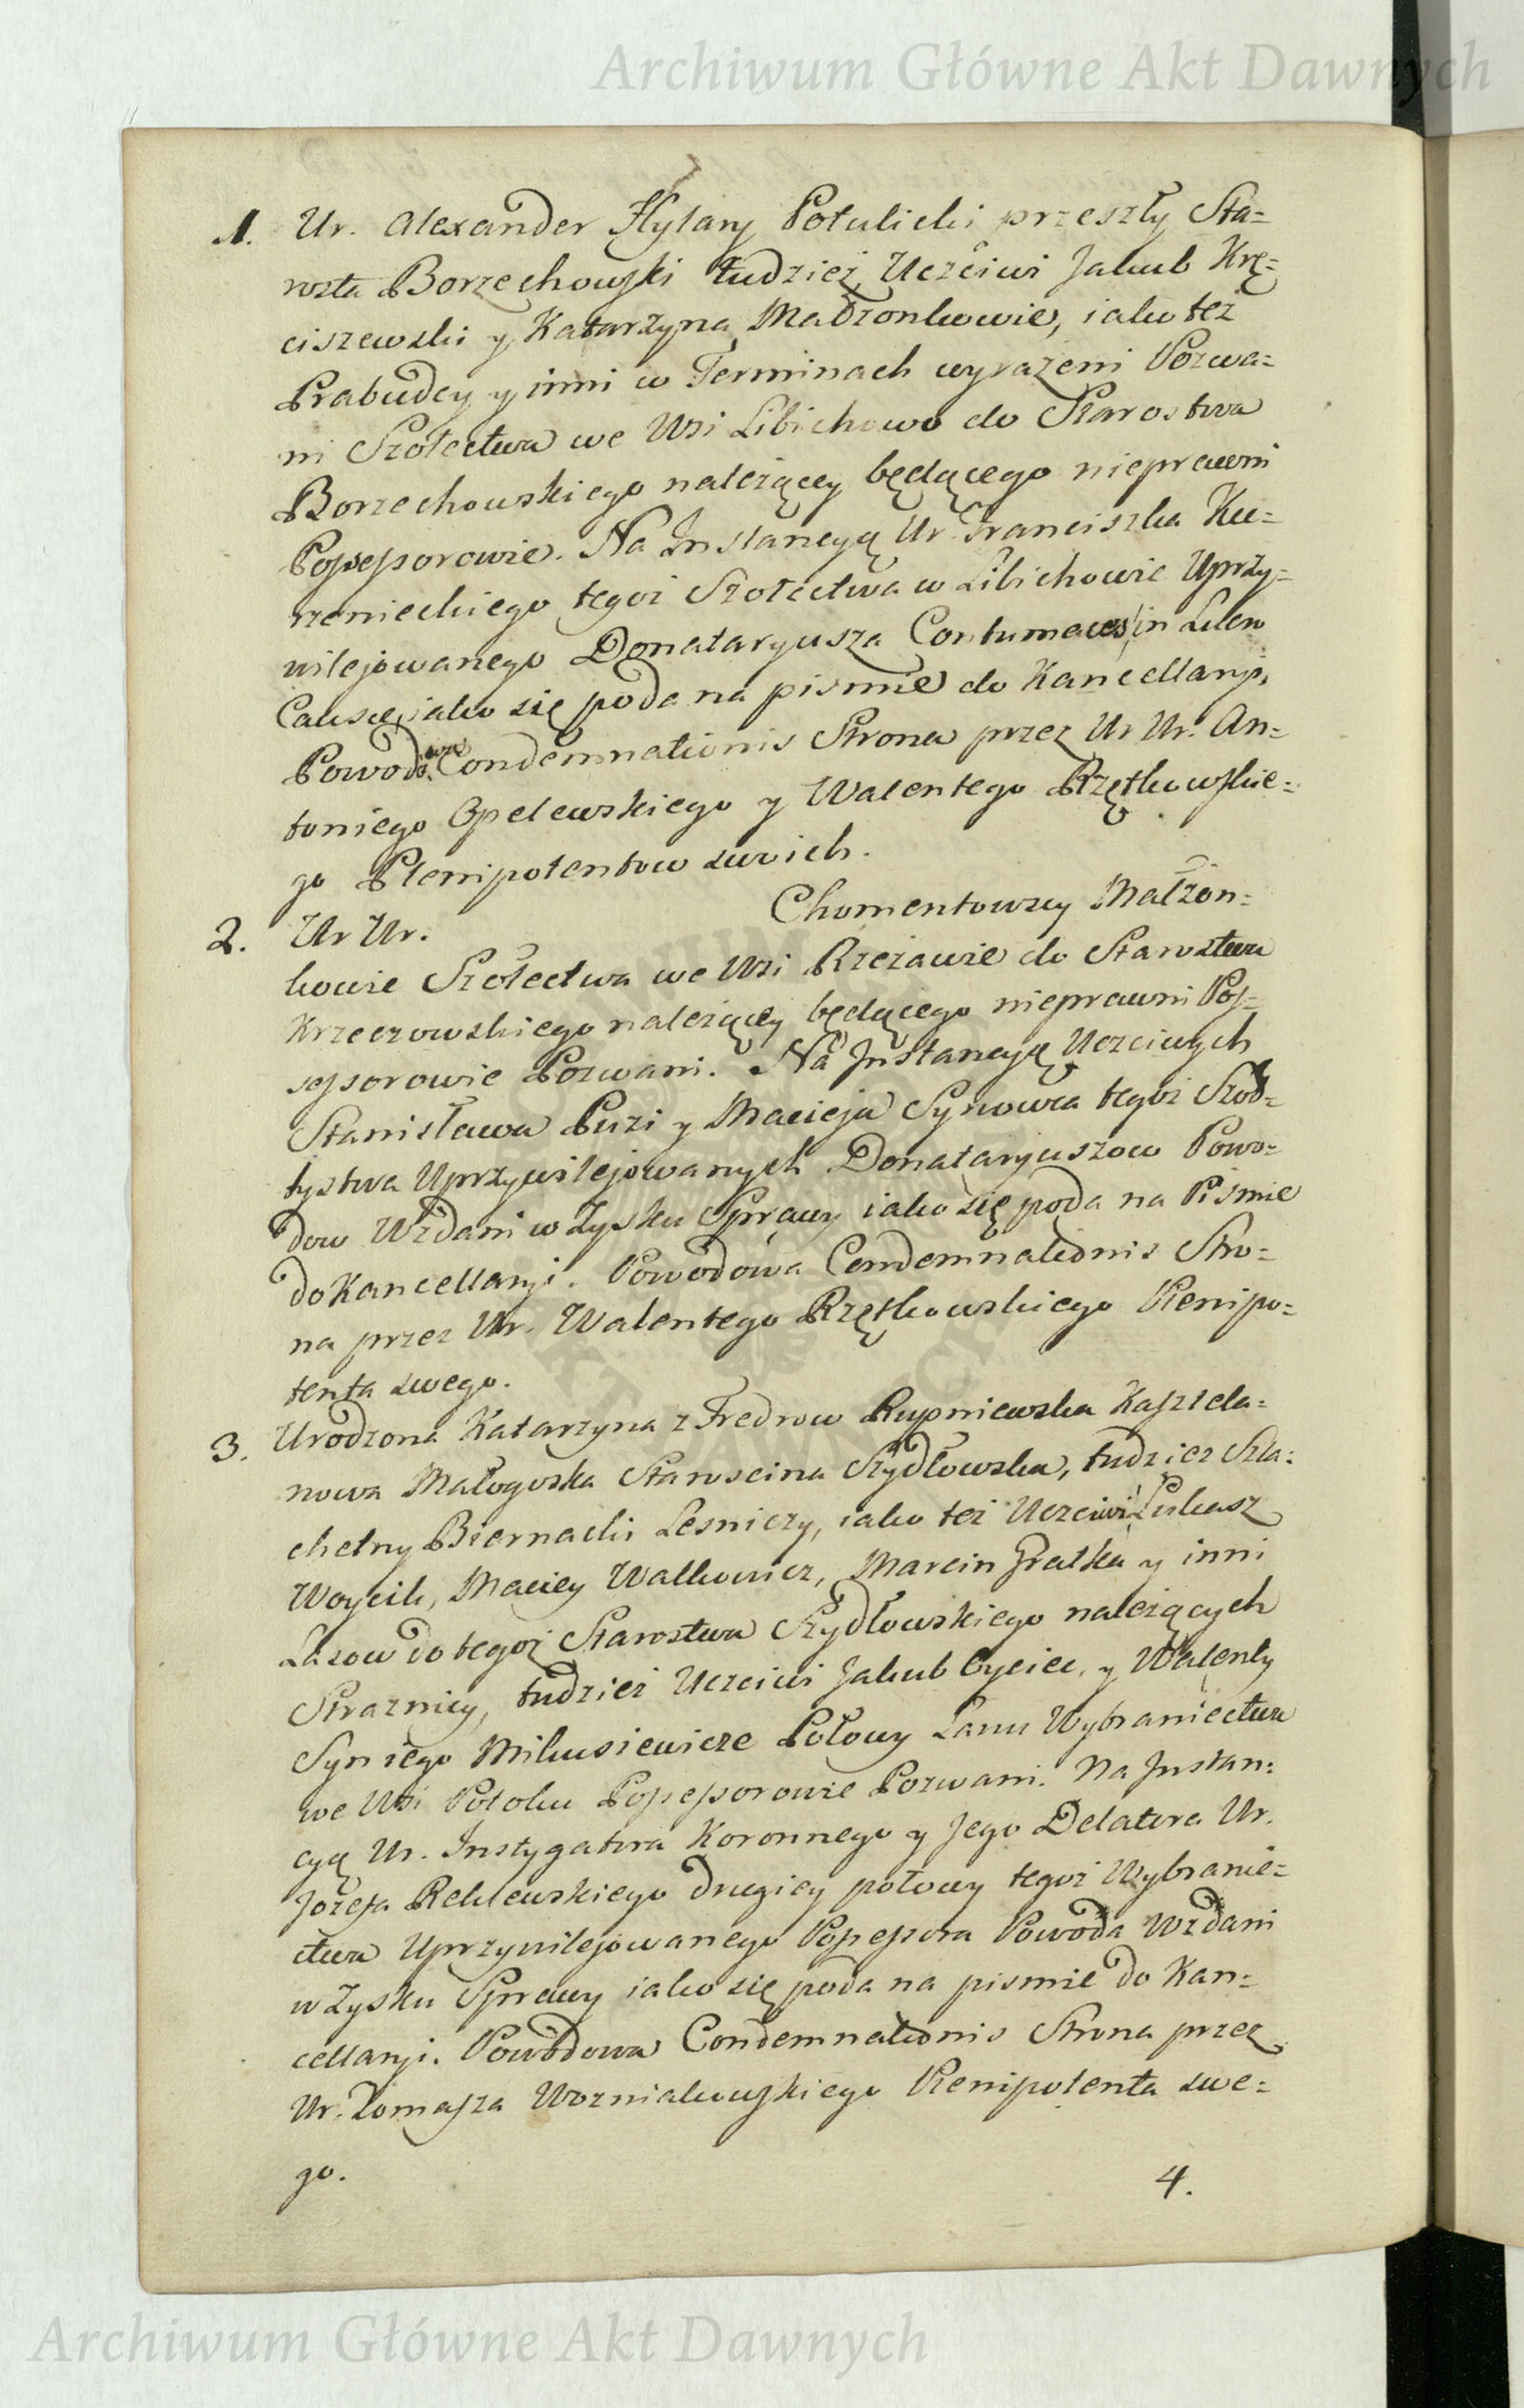 Archiwum Główne Akt Dawnych
1. Ur. Alexander Hylary Potulicki przeszły Sta=
rosta Borzechowski tudzież Uczciwi Jakub Krę=
ciszewski y Katarzyna Małżonkowie, iako też
Prabudcy y inni w Terminach wyrażeni Pozwa=
ni Szołectwa we Wsi Libichowo do Starostwa
Borzechowskiego należącey będącego nieprawni
Possessorowie. Na Instancyą Ur. Franciszka Ku=
rzenieckiego tegoż Szołectwa w Libichowie Uprzy=
wilejowanego Donataryusza Contumaces in Lucro
Causae, iako się poda na pismie do Kancellaryi,
Powodowa Condemnationis Strona przez Ur Ur. An=
toniego Opelewskiego y Walentego Rzętkowskie=
go Plenipotentow swoich.
2. Ur Ur. Chomentowscy Małżon=
kowie Szołectwa we Wsi Rzezawie do Starostwa
Krzeczowskiego należącey będącego nieprawni Pos=
sessorowie Pozwani. Na Instancyą Uczciwych
Stanisława Puzi y Macieja Synowca tegoż Szoł=
tystwa Uprzywilejowanych Donataryuszow Powo=
dow Wzdani w Zysku Sprawy iako się poda na Pismie
do Kancellaryi. Powodowa Condemnationis Stro=
na przez Ur. Walentego Rzętkowskiego Plenipo=
tenta swego.
3. Urodzona Katarzyna z Fredrow Rupniewska Kasztela=
nowa Małogoska Staroscina Szydłowska, tudziesz Szla=
chetny Biernacki Lesniczy, iako też Uczciwi Łukasz
Woycik, Maciey Walkowicz, Marcin Gratka y inni
Lasow do tegoż Starostwa Szydłowskiego należących
Straznicy, tudzież Uczciwi Jakub Oyciec, y Walenty
Syn iego Mikusiewicze Połowy Łanu Wybraniectwa
we Wsi Potoku Possessorowie Pozwani. Na Instan=
cyą Ur. Instygatora Koronnego y Jego Delatora Ur.
Jozefa Reklewskiego drugiey połowy tegoż Wybranie=
ctwa Uprzywilejowanego Possessora Powoda Wzdani
w Zysku Sprawy iako się poda na pismie do Kan=
cellaryi. Powodowa Condemnationis Strona przez
Ur. Tomasza Wozniakowskiego Plenipotenta swe=
go.
4.
Archiwum Główne Akt Dawnych